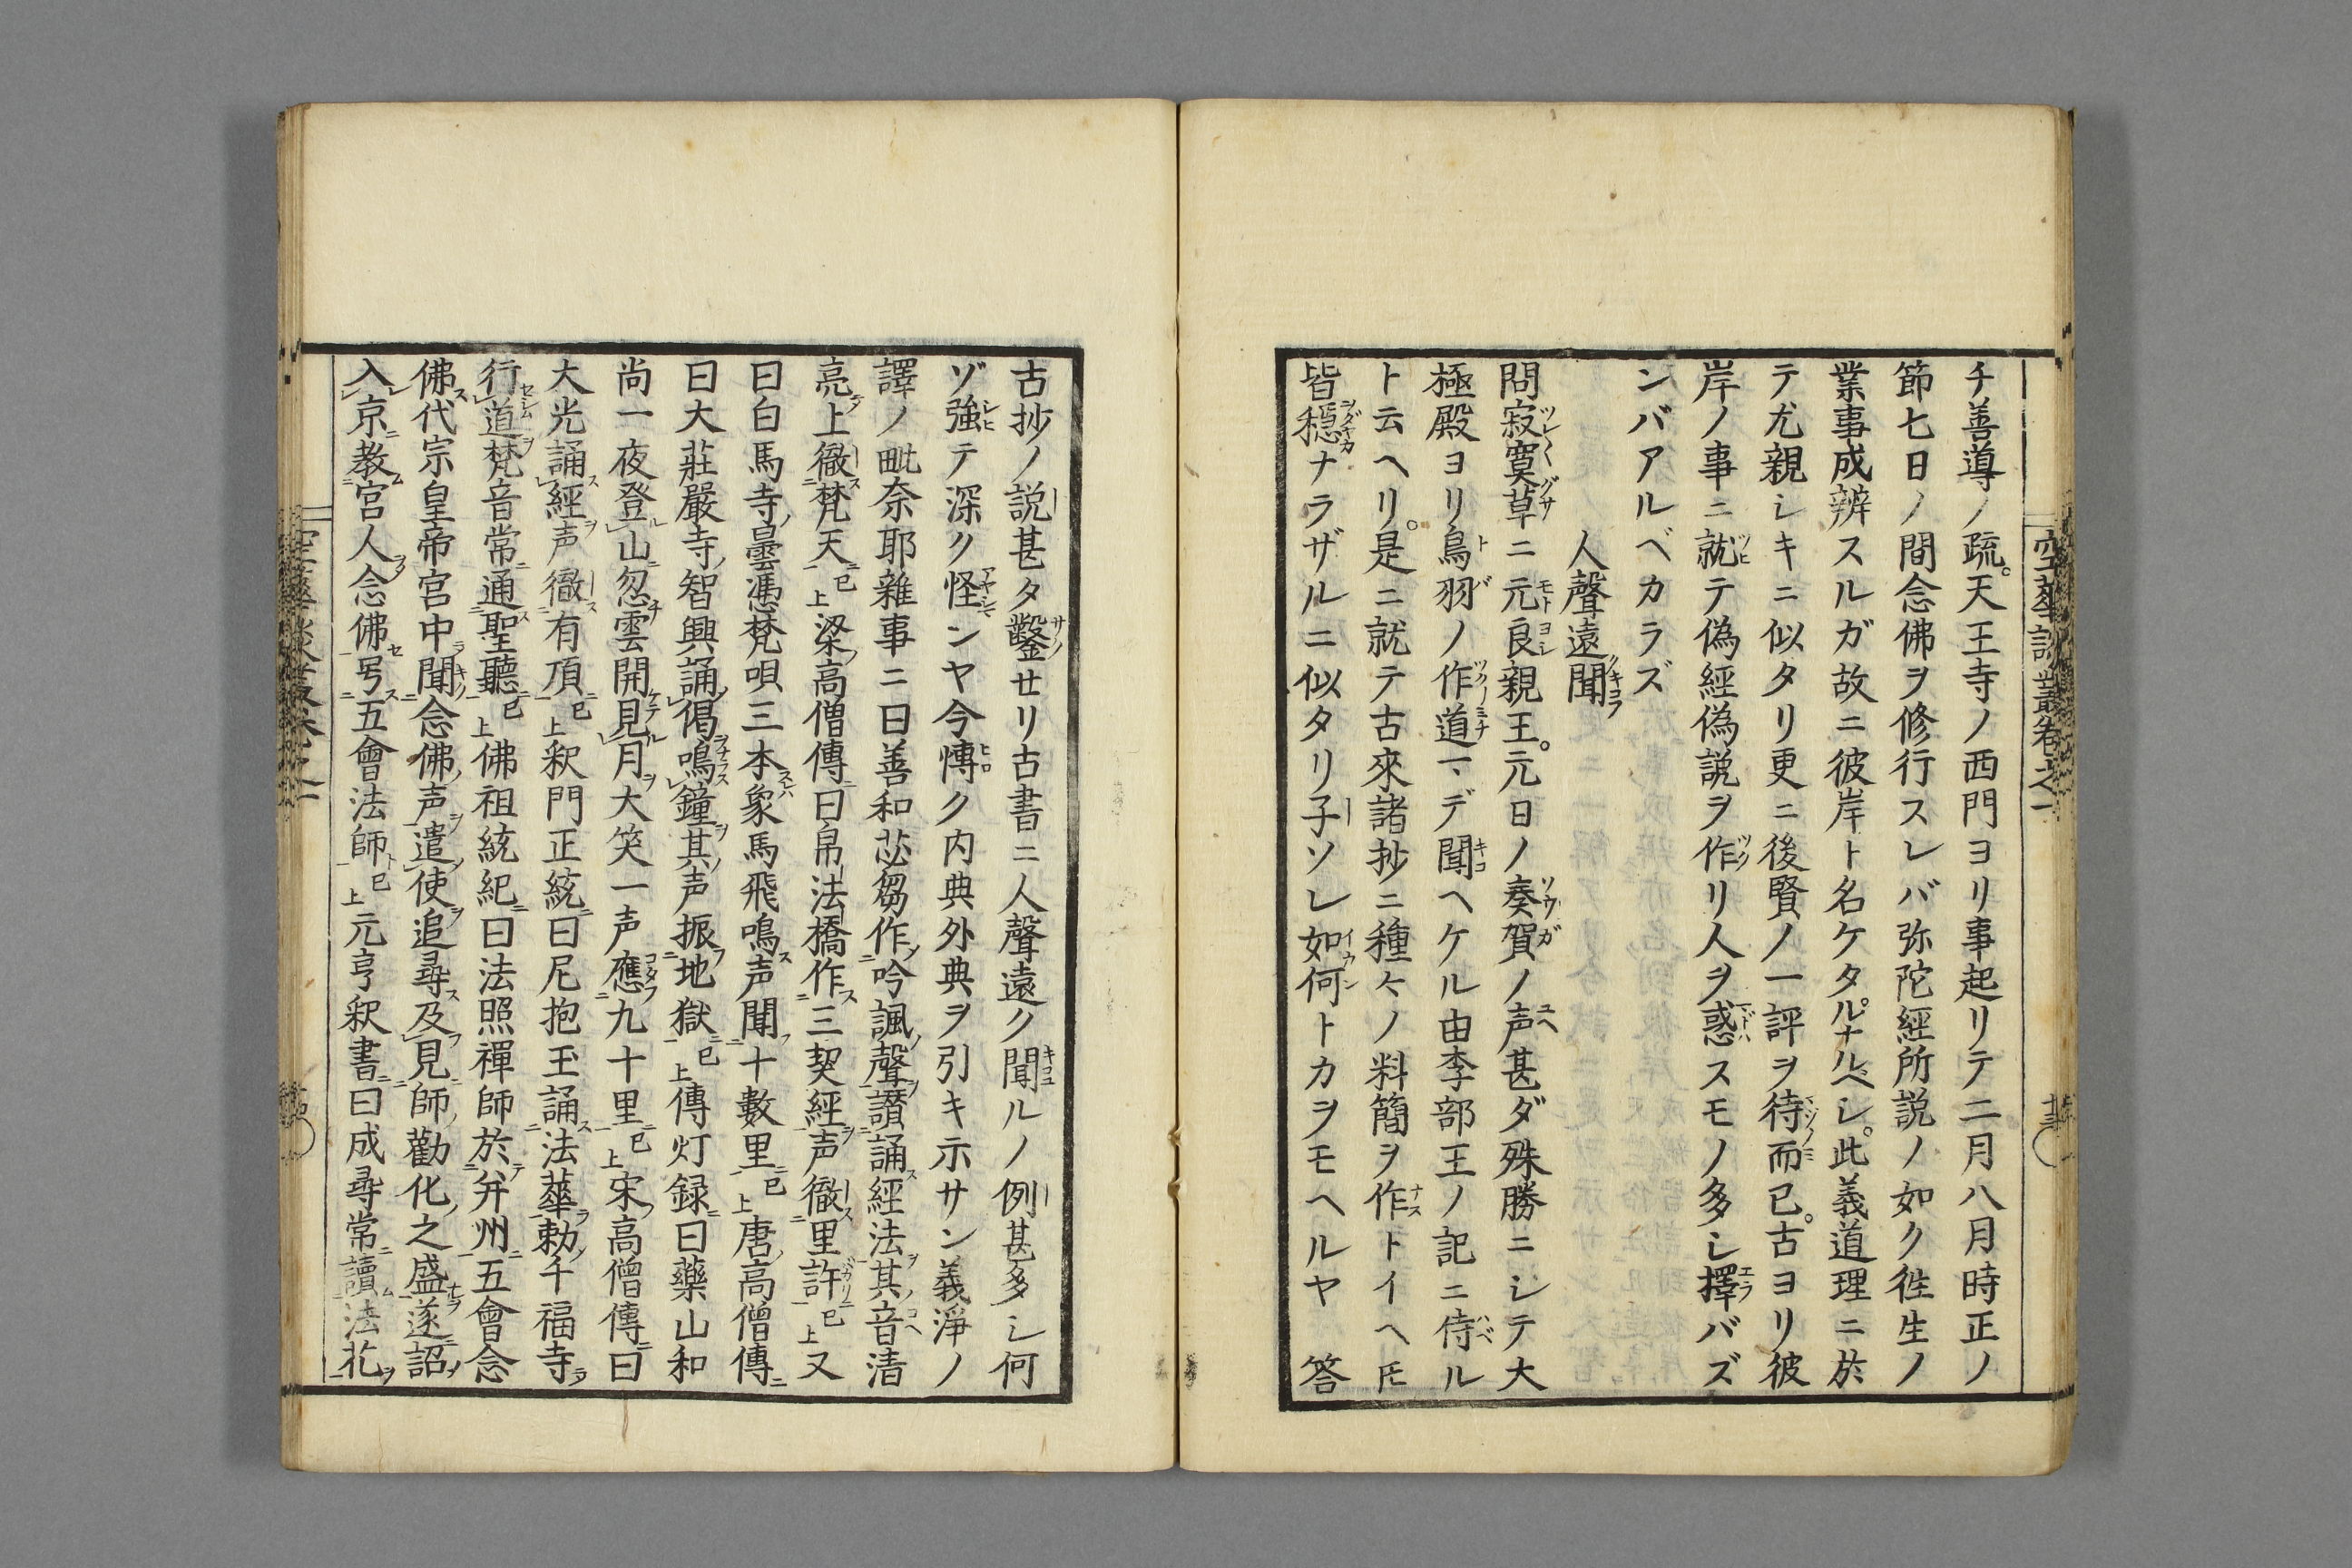 空華談叢卷之一
チ善導ノ疏。天王寺ノ西門ヨリ事起リテ二月八月時正ノ
節七日ノ間念佛ヲ修行スレバ弥陀經所説ノ如ク徃生ノ
業事成辨スルガ故ニ彼岸ト名ケタルナルベシ。此義道理ニ於
テ尤親シキニ似タリ更ニ後賢ノ一評ヲ待而已。古ヨリ彼
岸ノ事ニ就テ偽經偽説ヲ作リ人ヲ惑スモノ多シ擇バズ
ンバアルベカラズ
人聲遠聞
問寂寞草ニ元良親王。元日ノ奏賀ノ声甚ダ殊勝ニシテ大
極殿ヨリ鳥羽ノ作道マデ聞ヘケル由李部王ノ記ニ侍ル
ト云ヘリ。是ニ就テ古來諸抄ニ種々ノ料簡ヲ作トイヘ𪜈
皆穩ナラザルニ似タリ子ソレ如何トカヲモヘルヤ 答
古抄ノ説甚タ鑿セリ古書ニ人聲遠ク聞ルノ例甚多シ何
ゾ強テ深ク怪ンヤ今愽ク内典外典ヲ引キ示サン義淨ノ
譯ノ毗奈耶雜事ニ曰善和苾芻作吟諷聲讃誦經法其音清
亮上徹梵天已上梁高僧傳曰帛法橋作三契經声徹里許已上又
曰白馬寺曇憑梵唄三本象馬飛鳴声聞十數里已上唐高僧傳
曰大莊嚴寺智興誦偈鳴鐘其声振地獄已上傳灯録曰藥山和
尚一夜登山忽雲開見月大笑一声應九十里已上宋高僧傳曰
大光誦經声徹有頂已上釈門正統曰尼抱玉誦法華勅千福寺
行道梵音常通聖聽已上佛祖統紀曰法照禪師於并州五會念
佛代宗皇帝宮中聞念佛声遣使追尋及見師勸化之盛遂詔
入京教宮人念佛号五會法師已上元亨釈書曰成尋常讀法花